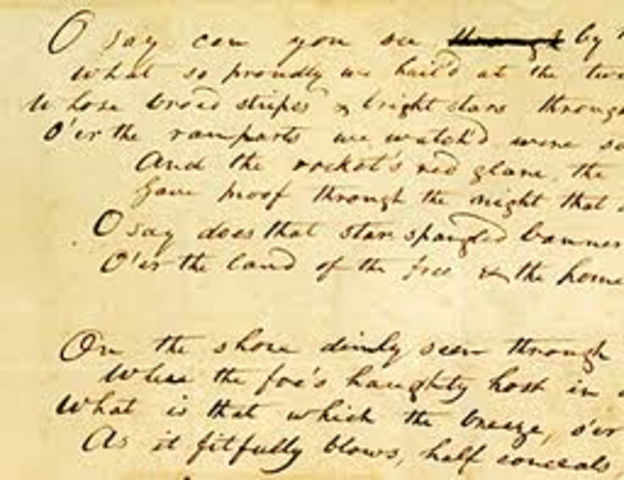 O say can you see ~~through~~ by
What so proudly we hail'd at the
Whose broad stripes & bright stars through
O'er the ramparts we watch'd, were so
And the rocket's red glare, the
Gave proof through the night that
O say does that star spangled banner
O'er the land of the free & the home
On the shore dimly seen through
Where the foe's haughty host in
What is that which the breeze, o'er
As it fitfully blows, half conceals,